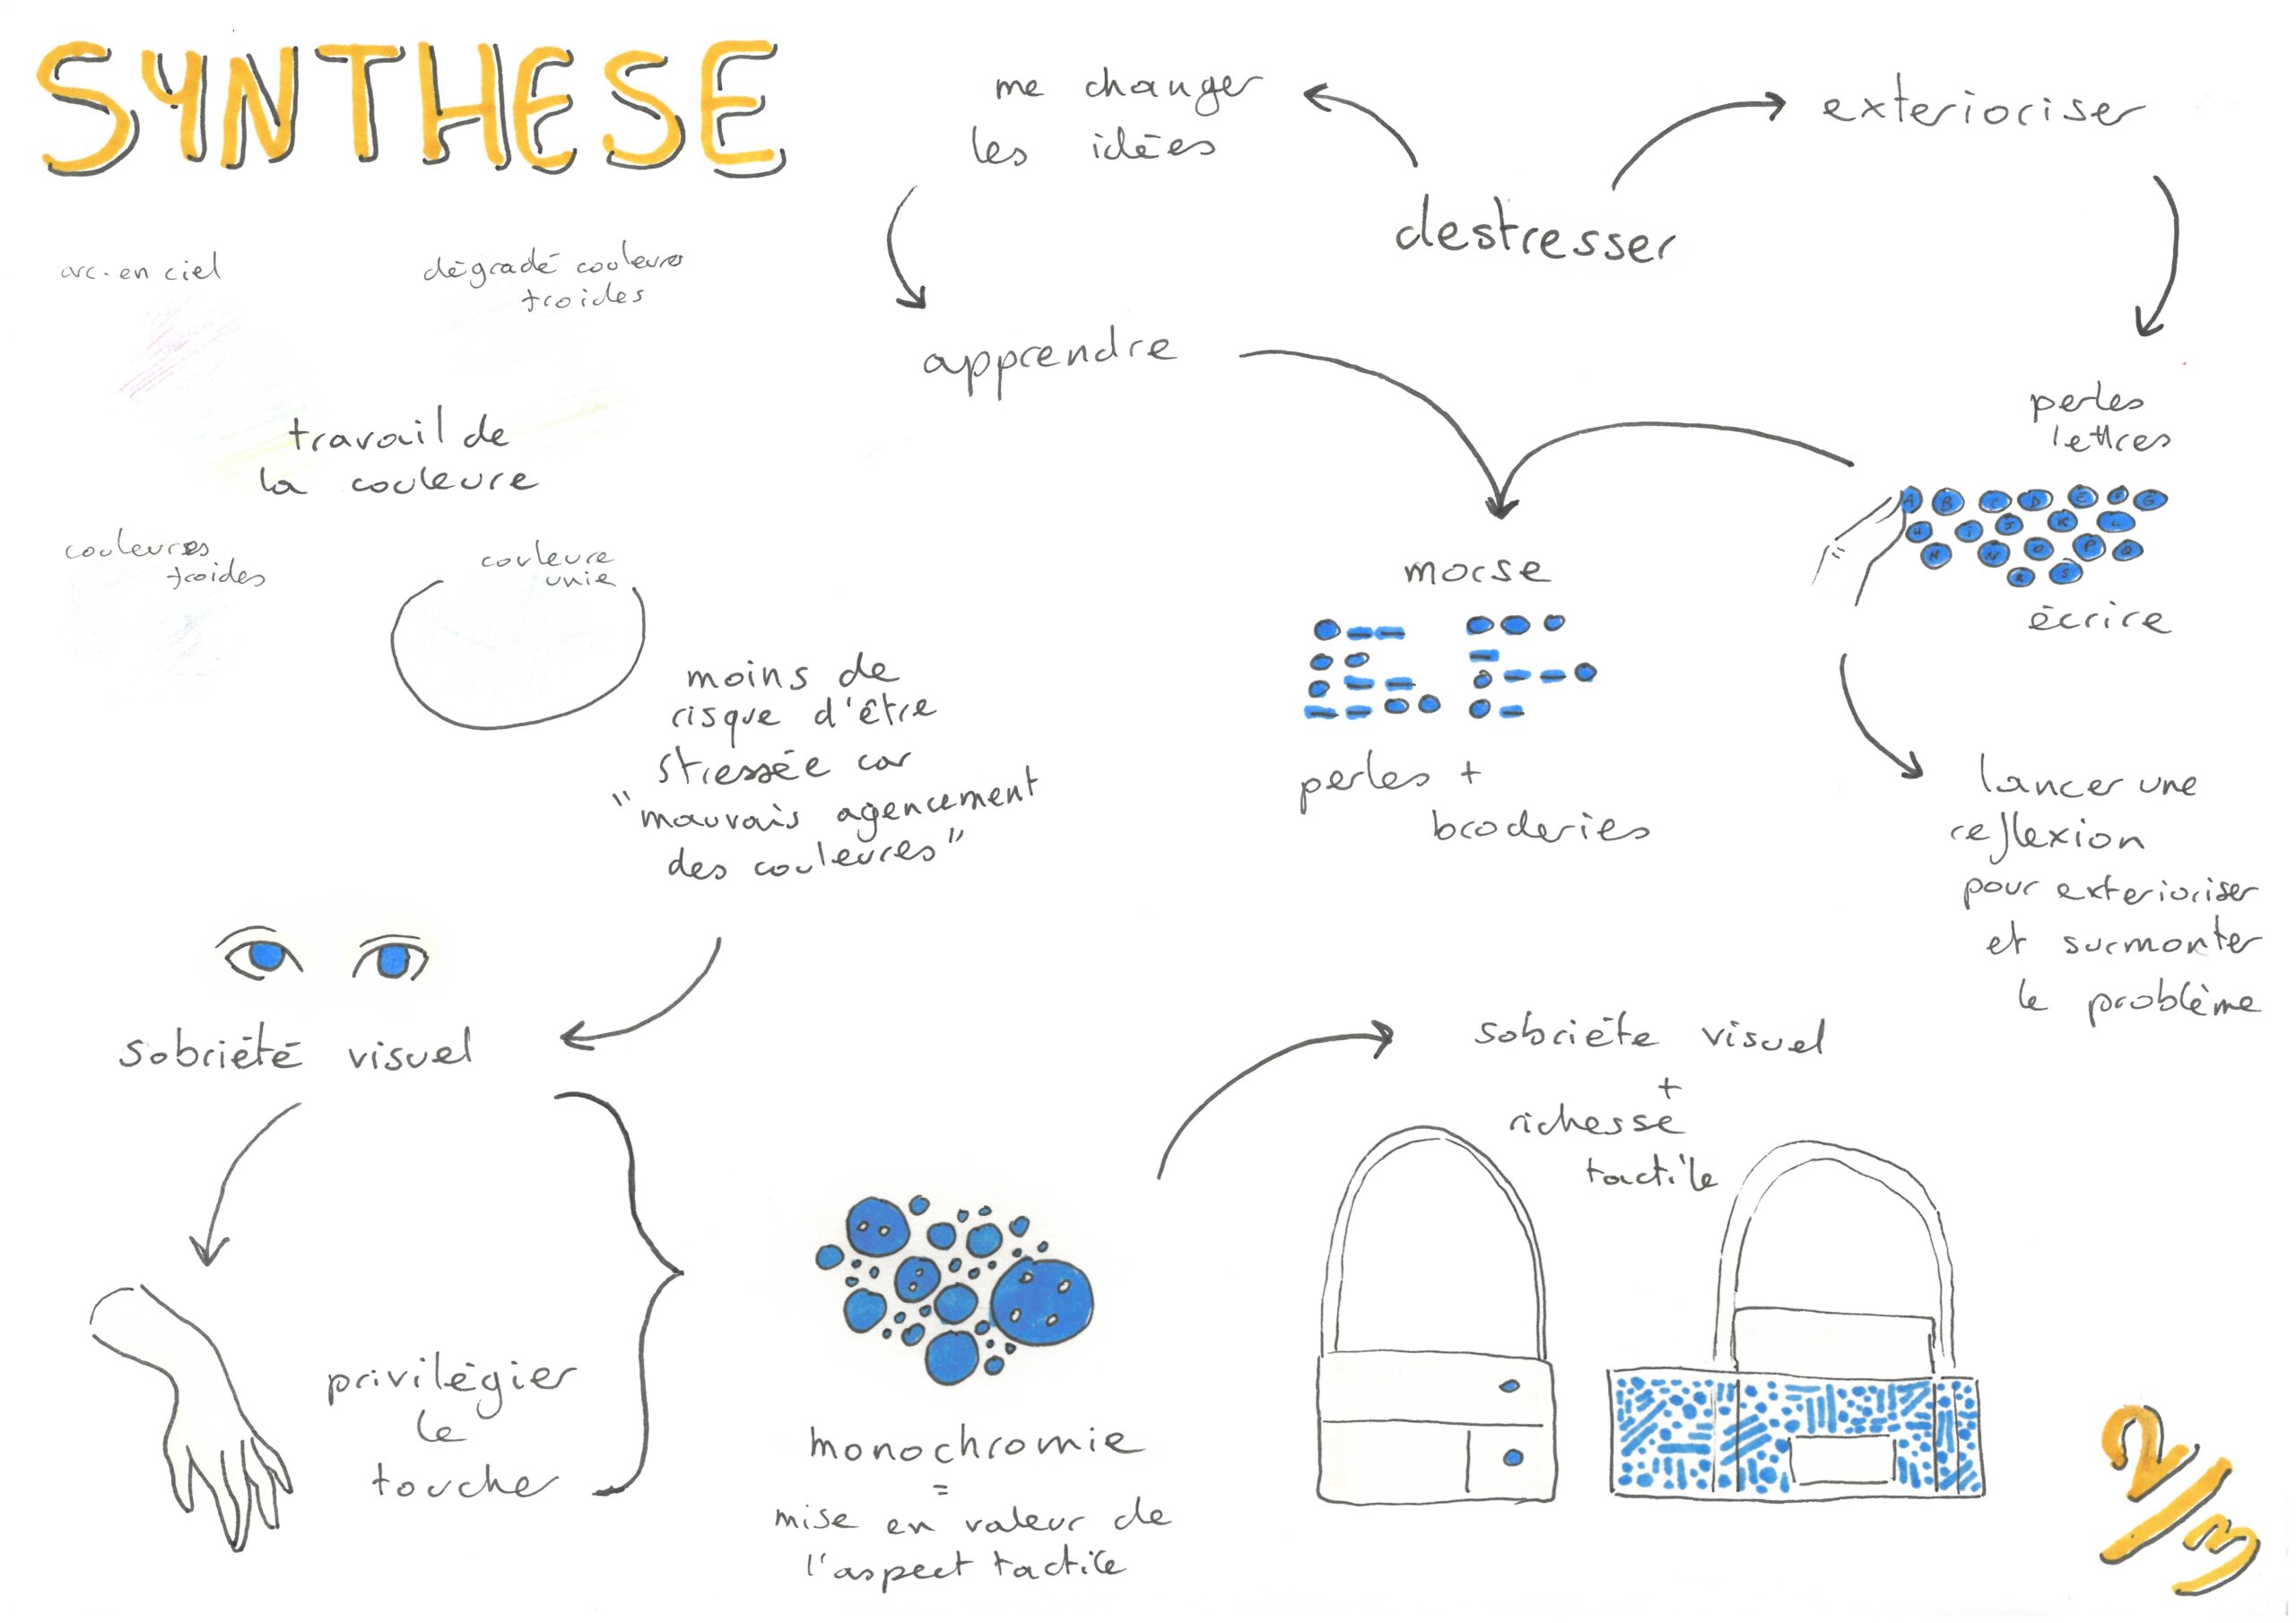 SYNTHESE
me changer
les idées
exterioriser
destresser
arc-en ciel
dégradé couleures
froides
apprendre
travail de
la couleure
perles
lettres
A B C D E F G
H I J K L
M N O P Q
R S
écrire
couleures
froides
couleure
unie
morse
perles +
broderies
moins de
risque d'être
stressée car
"mauvais agencement
des couleures"
lancer une
reflexion
pour exterioriser
et surmonter
le problème
sobriété visuel
sobriéte visuel
+
richesse
tactile
privilégier
le
touche
monochromie
=
mise en valeur de
l'aspect tactile
2/3